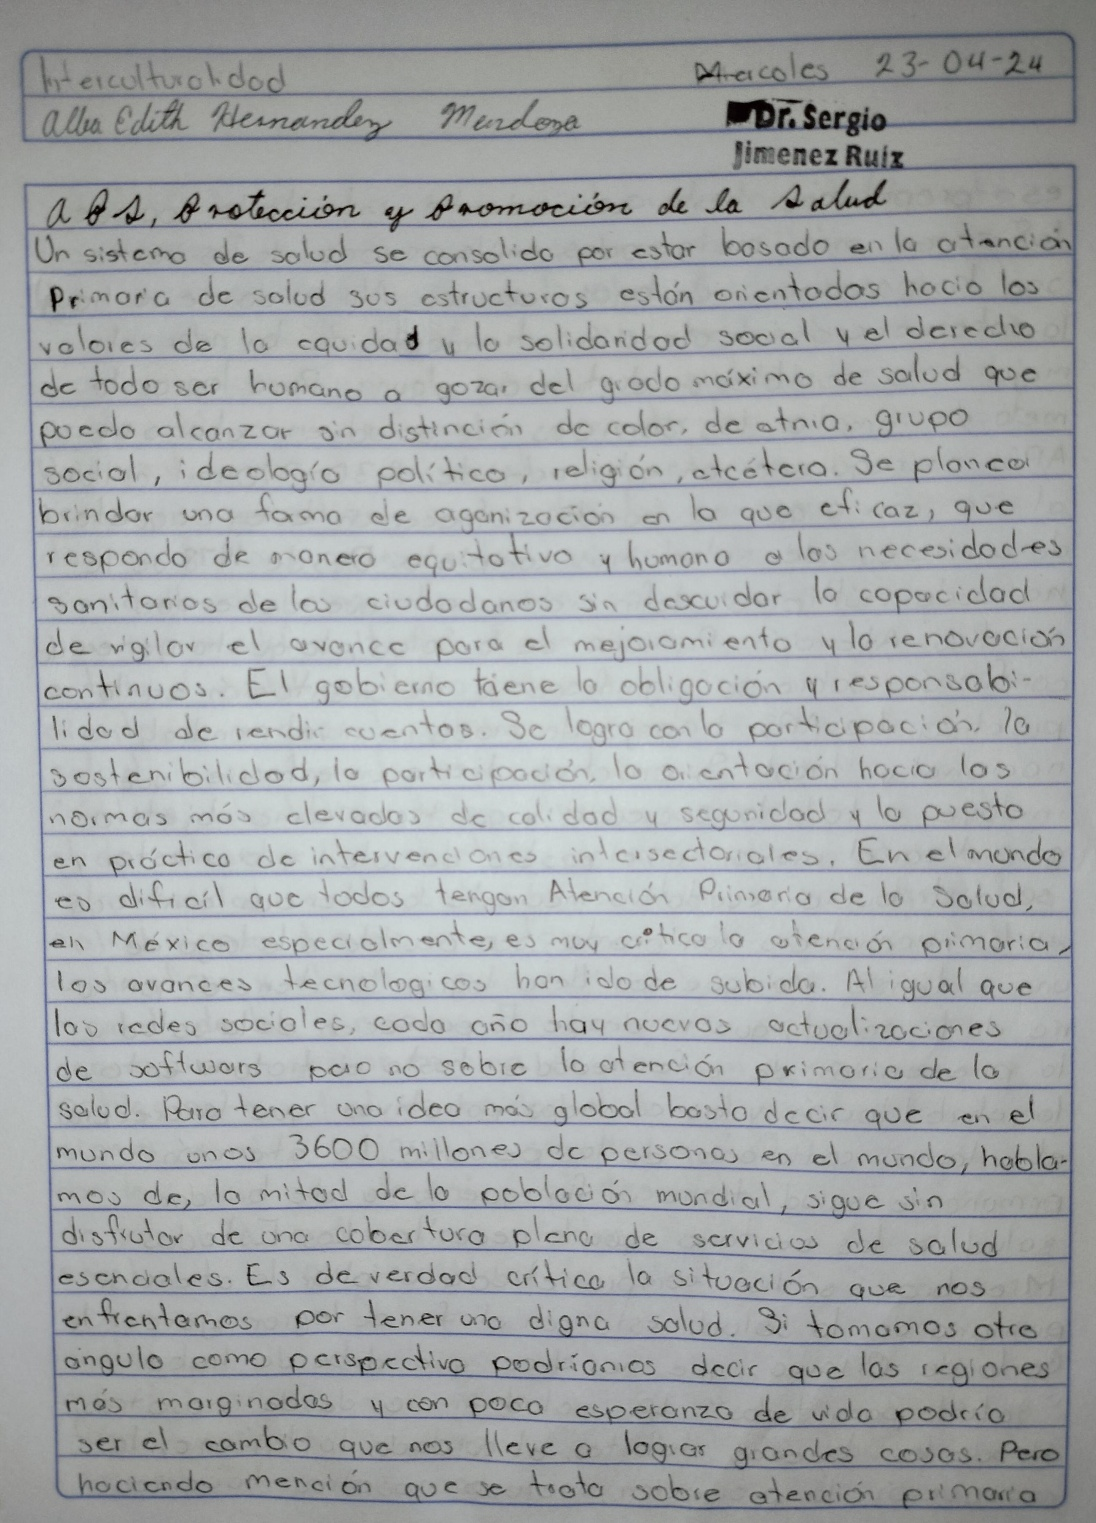 Interculturalidad
Miercoles 23-04-24
Alba Edith Hernandez Mendoza
Dr. Sergio
Jimenez Ruiz
APS, Protección y Promoción de la Salud
Un sistema de salud se consolida por estar basado en la atención
Primaria de salud sus estructuras están orientadas hacia los
valores de la equidad y la solidaridad social y el derecho
de todo ser humano a gozar del grado máximo de salud que
pueda alcanzar sin distinción de color, de etnia, grupo
social, ideología política, religión, etcétera. Se planea
brindar una forma de aganización en la que eficaz, que
responda de manera equitativa y humana a las necesidades
sanitarias de los ciudadanos sin descuidar la capacidad
de vigilar el avance para el mejoramiento y la renovación
continuos. El gobierno tiene la obligación y responsabi-
lidad de rendir cuentas. Se logra con la participación, la
sostenibilidad, la participación, la orientación hacia las
normas más elevadas de calidad y seguridad y la puesta
en práctica de intervenciones intersectoriales. En el mundo
es dificíl que todos tengan Atención Primaria de la Salud,
en México especialmente, es muy crítica la atención primaria,
los avances tecnologicos han ido de subida. Al igual que
las redes sociales, cada año hay nuevas actualizaciones
de softwars pero no sobre la atención primaria de la
salud. Para tener una idea más global basta decir que en el
mundo unos 3600 millones de personas en el mundo, habla-
mos de, la mitad de la población mundial, sigue sin
disfrutar de una cobertura plena de servicios de salud
esenciales. Es de verdad crítica la situación que nos
enfrentamos por tener una digna salud. Si tomamos otro
angulo como perspectiva podríamos decir que las regiones
más marginadas y con poca esperanza de vida podría
ser el cambio que nos lleve a lograr grandes cosas. Pero
haciendo mención que se trata sobre atención primaria